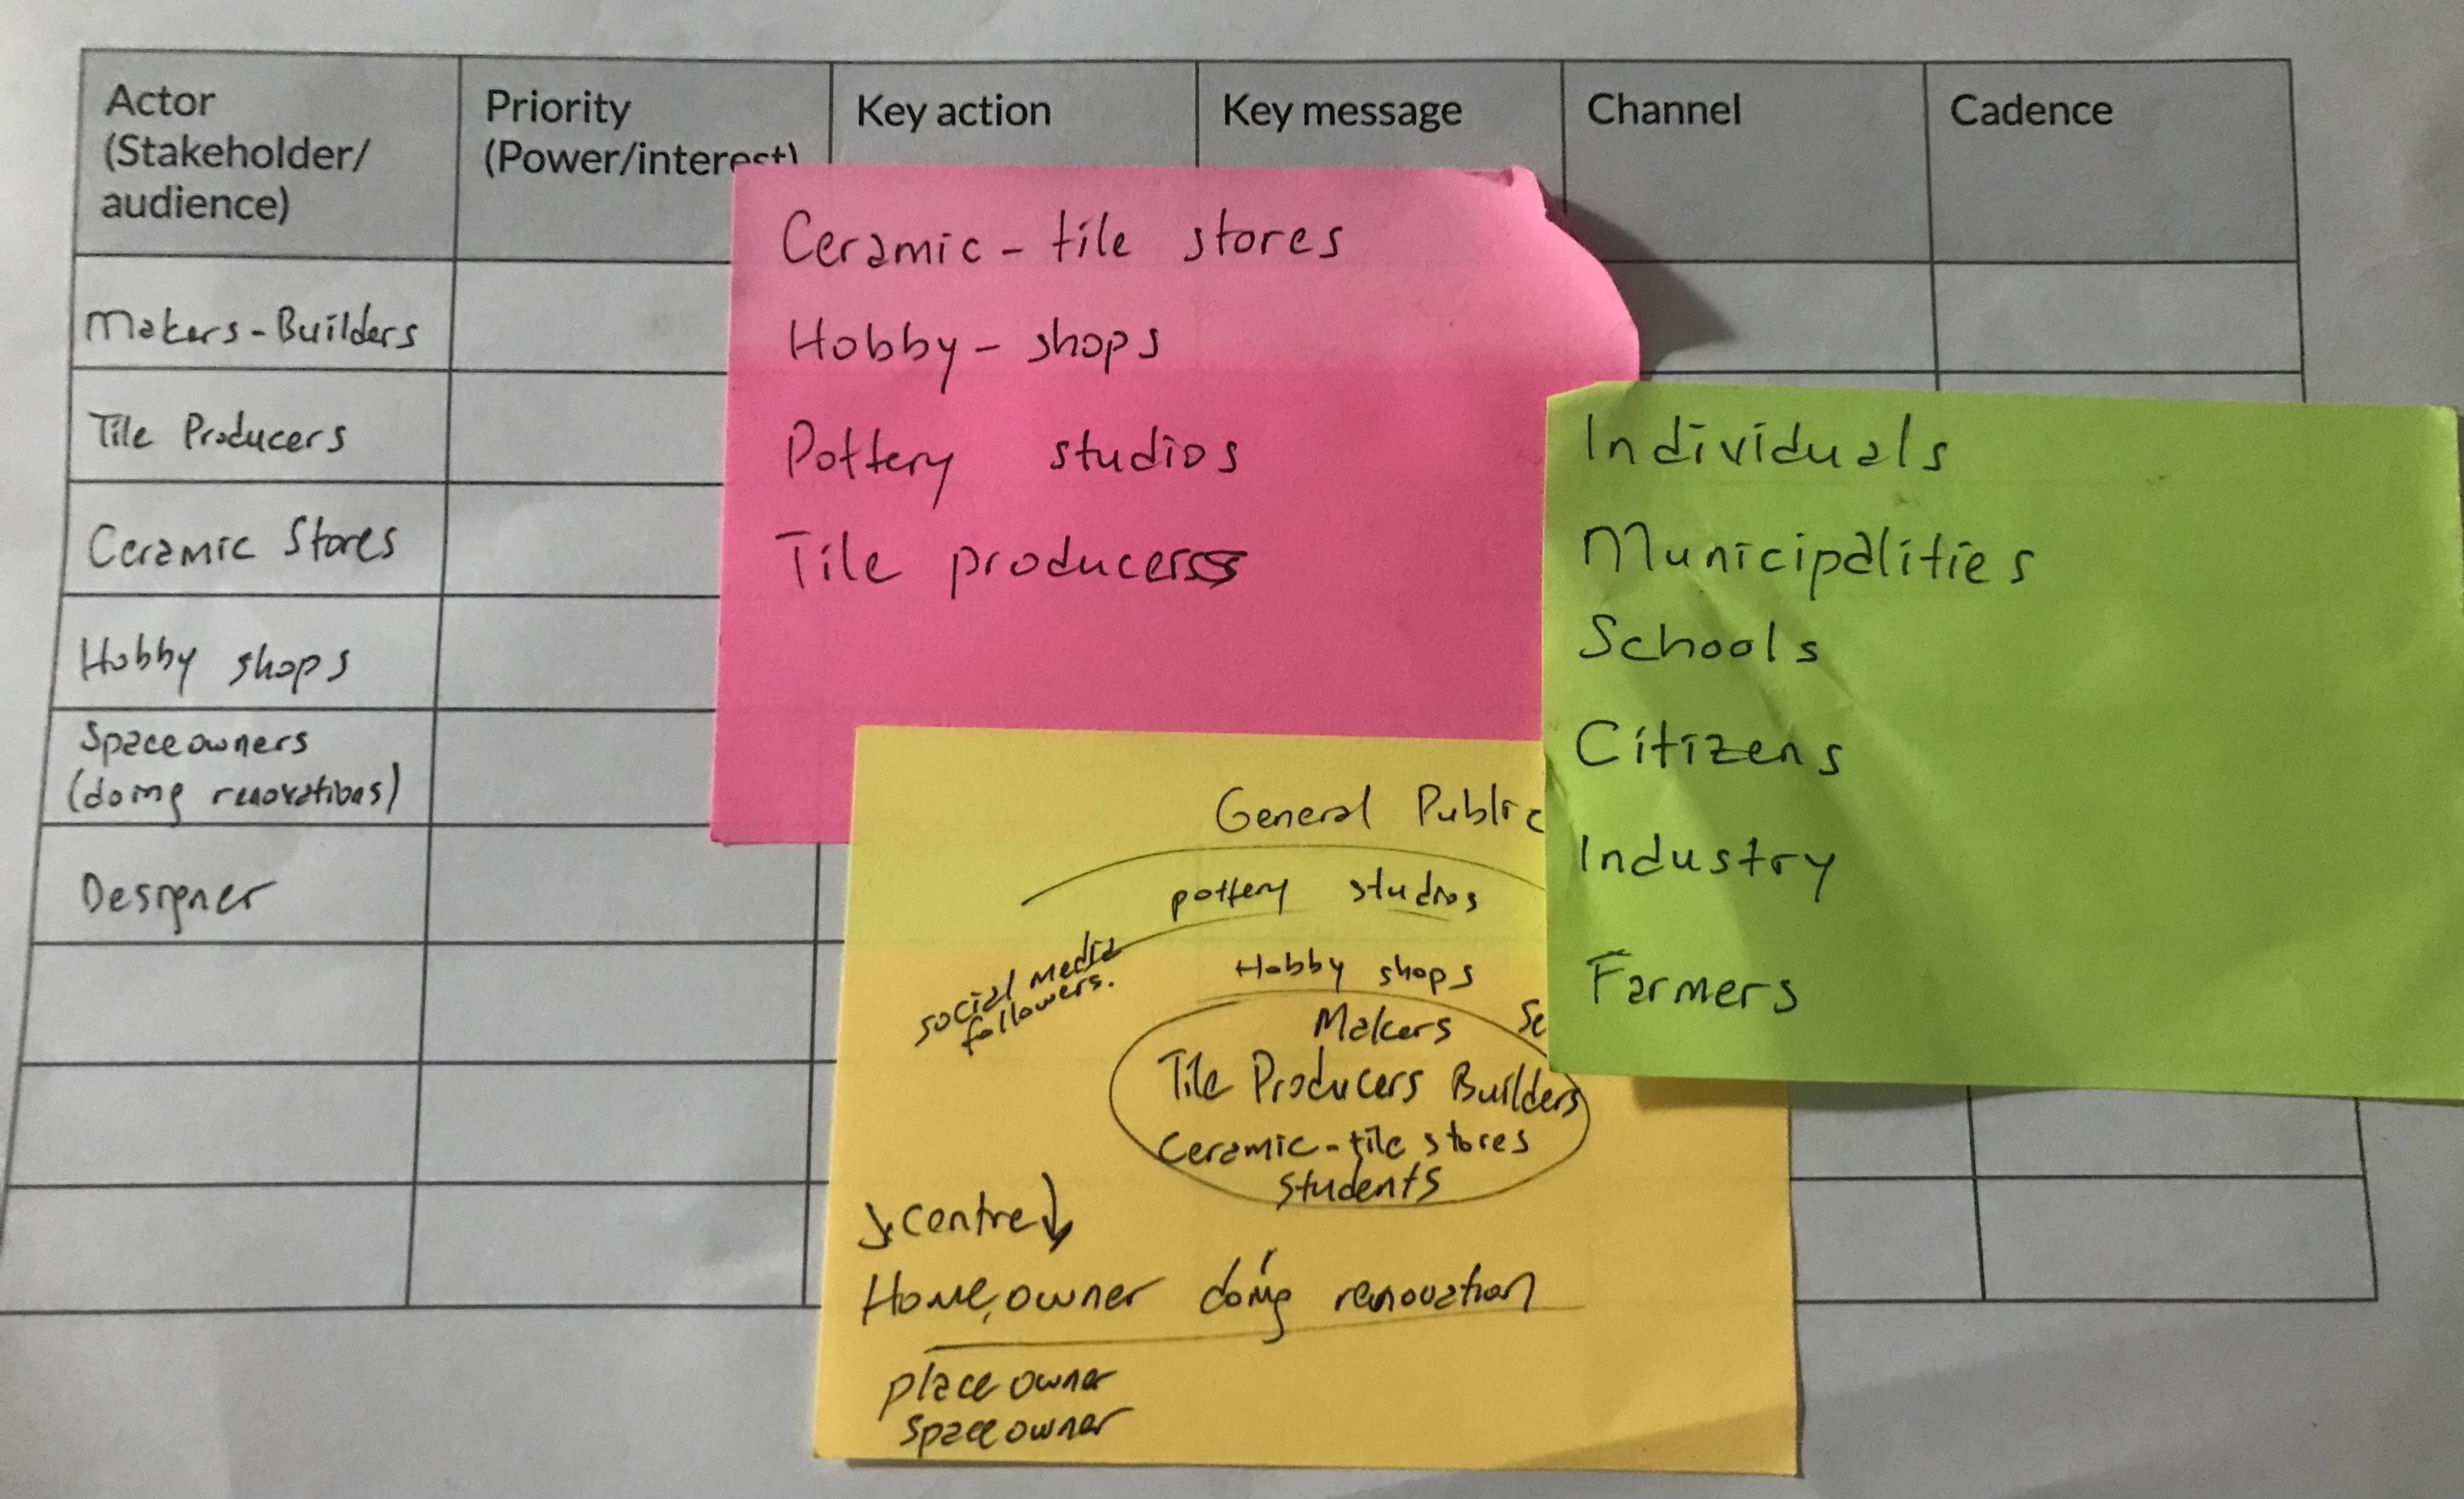 Actor
(Stakeholder/
audience)
Priority
(Power/interest)
Key action
Key message
Channel
Cadence
Makers-Builders
Tile Producers
Ceramic Stores
Hobby shops
Spaceowners
(doing renovations)
Designer
Ceramic-tile stores
Hobby-shops
Pottery studios
Tile producers
Individuals
Municipalities
Schools
Citizens
Industry
Farmers
General Public
pottery studios
social media
followers.
Hobby shops
Makers
Tile Producers Builders
Ceramic-tile stores
students
centre
Home,owner doing renovation
place owner
space owner